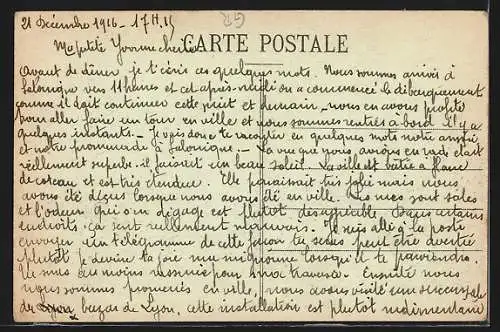 21 Décembre 1916 - 17 H. 15
25
Ma petite Yvonne chérie
CARTE POSTALE
Avant de dîner, je t'écris ces quelques mots. Nous sommes arrivés à
Salonique vers 11 heures et cet après-midi on a commencé le débarquement
comme il doit continuer cette nuit et demain, nous en avons profité
pour aller faire un tour en ville et nous sommes rentrés à bord il y a
quelques instants. - Je vais donc te raconter en quelques mots notre arrivée
et notre promenade à Salonique. - La vue que nous avions en rade était
réellement superbe. il faisait un beau soleil. La ville est bâtie à flanc
de coteau et est très étendue. Elle paraissait très jolie mais nous
avons été déçus lorsque nous avons été en ville. Les rues sont sales
et l'odeur qui s'en dégage est plutôt désagréable. Dans certains
endroits, ça sent réellement mauvais. Je suis allé à la poste
envoyer un télégramme de cette façon tu seras peut être avertie
plutôt je devine ta joie ma mignonne lorsqu'il te parviendra.
Tu seras au moins rassurée pour ma traversée. Ensuite nous
nous sommes promenés en ville, nous avons visité une succursale
du bazar de Lyon, cette installation est plutôt rudimentaire